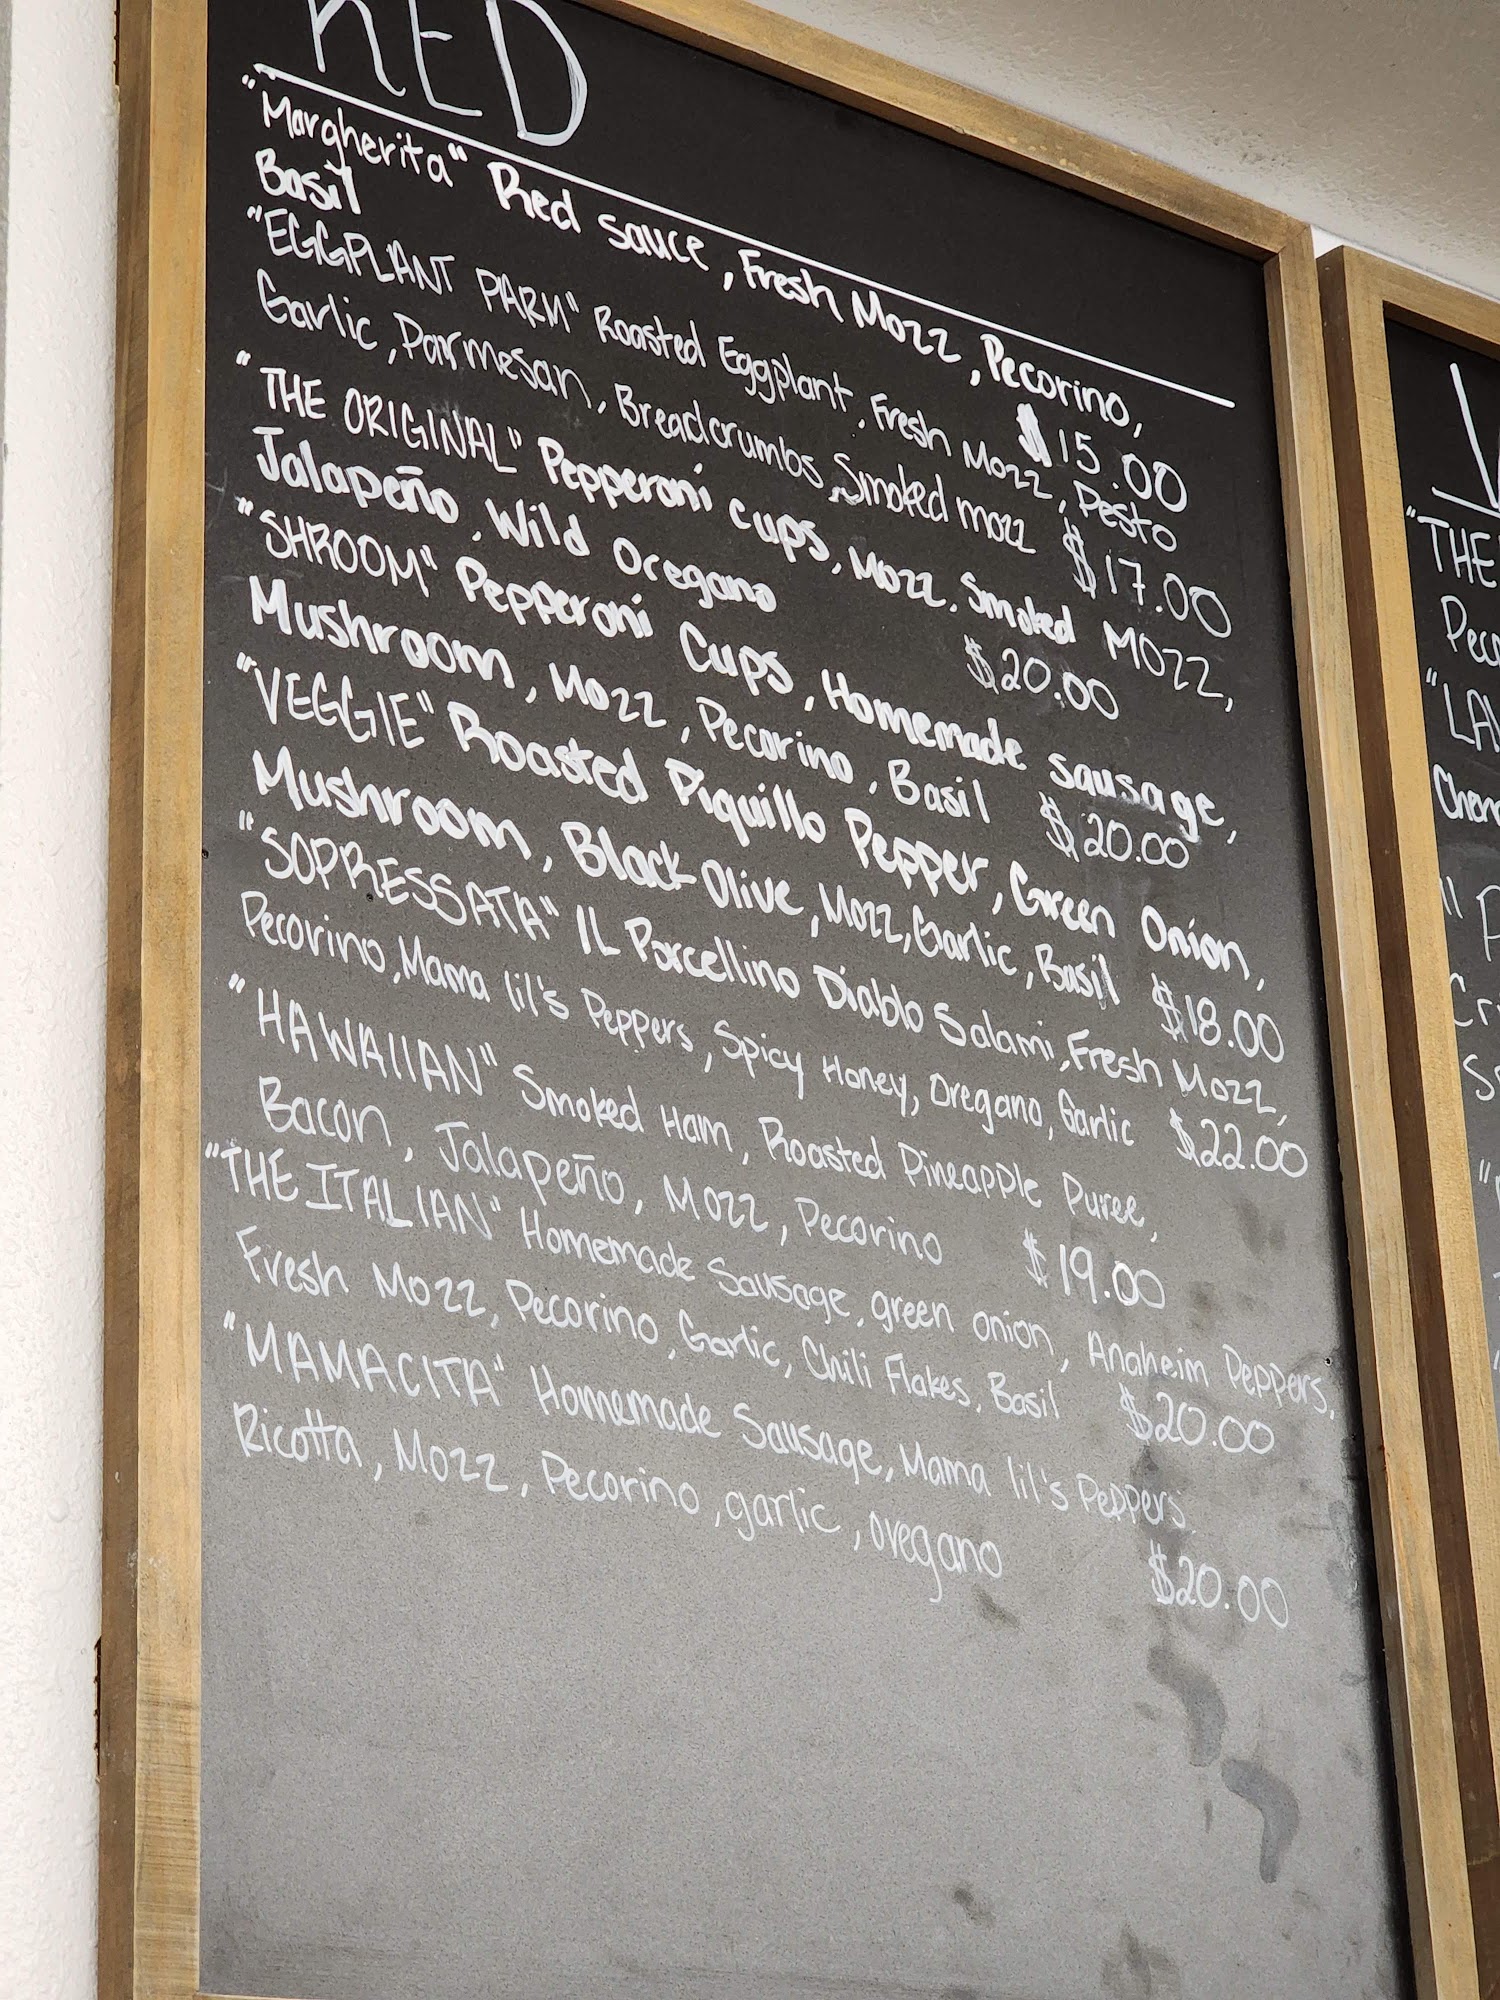 RED
"Margherita" Red sauce, Fresh Mozz, Pecorino,
Basil $15.00
"EGGPLANT PARM" Roasted Eggplant, Fresh Mozz, Pesto
Garlic, Parmesan, Breadcrumbs, Smoked mozz $17.00
"THE ORIGINAL" Pepperoni cups, Mozz, Smoked MOZZ,
Jalapeño, Wild Oregano $20.00
"SHROOM" Pepperoni Cups, Homemade sausage,
Mushroom, Mozz, Pecorino, Basil $20.00
"VEGGIE" Roasted Piquillo Pepper, Green Onion,
Mushroom, Black Olive, Mozz, Garlic, Basil $18.00
"SOPRESSATA" IL Porcellino Diablo Salami, Fresh Mozz,
Pecorino, Mama lil's Peppers, Spicy Honey, Oregano, Garlic $22.00
"HAWAIIAN" Smoked Ham, Roasted Pineapple Puree,
Bacon, Jalapeño, Mozz, Pecorino $19.00
"THE ITALIAN" Homemade Sausage, green onion, Anaheim Peppers,
Fresh Mozz, Pecorino, Garlic, Chili Flakes, Basil $20.00
"MAMACITA" Homemade Sausage, Mama lil's Peppers,
Ricotta, Mozz, Pecorino, garlic, oregano $20.00
"THE
"LA